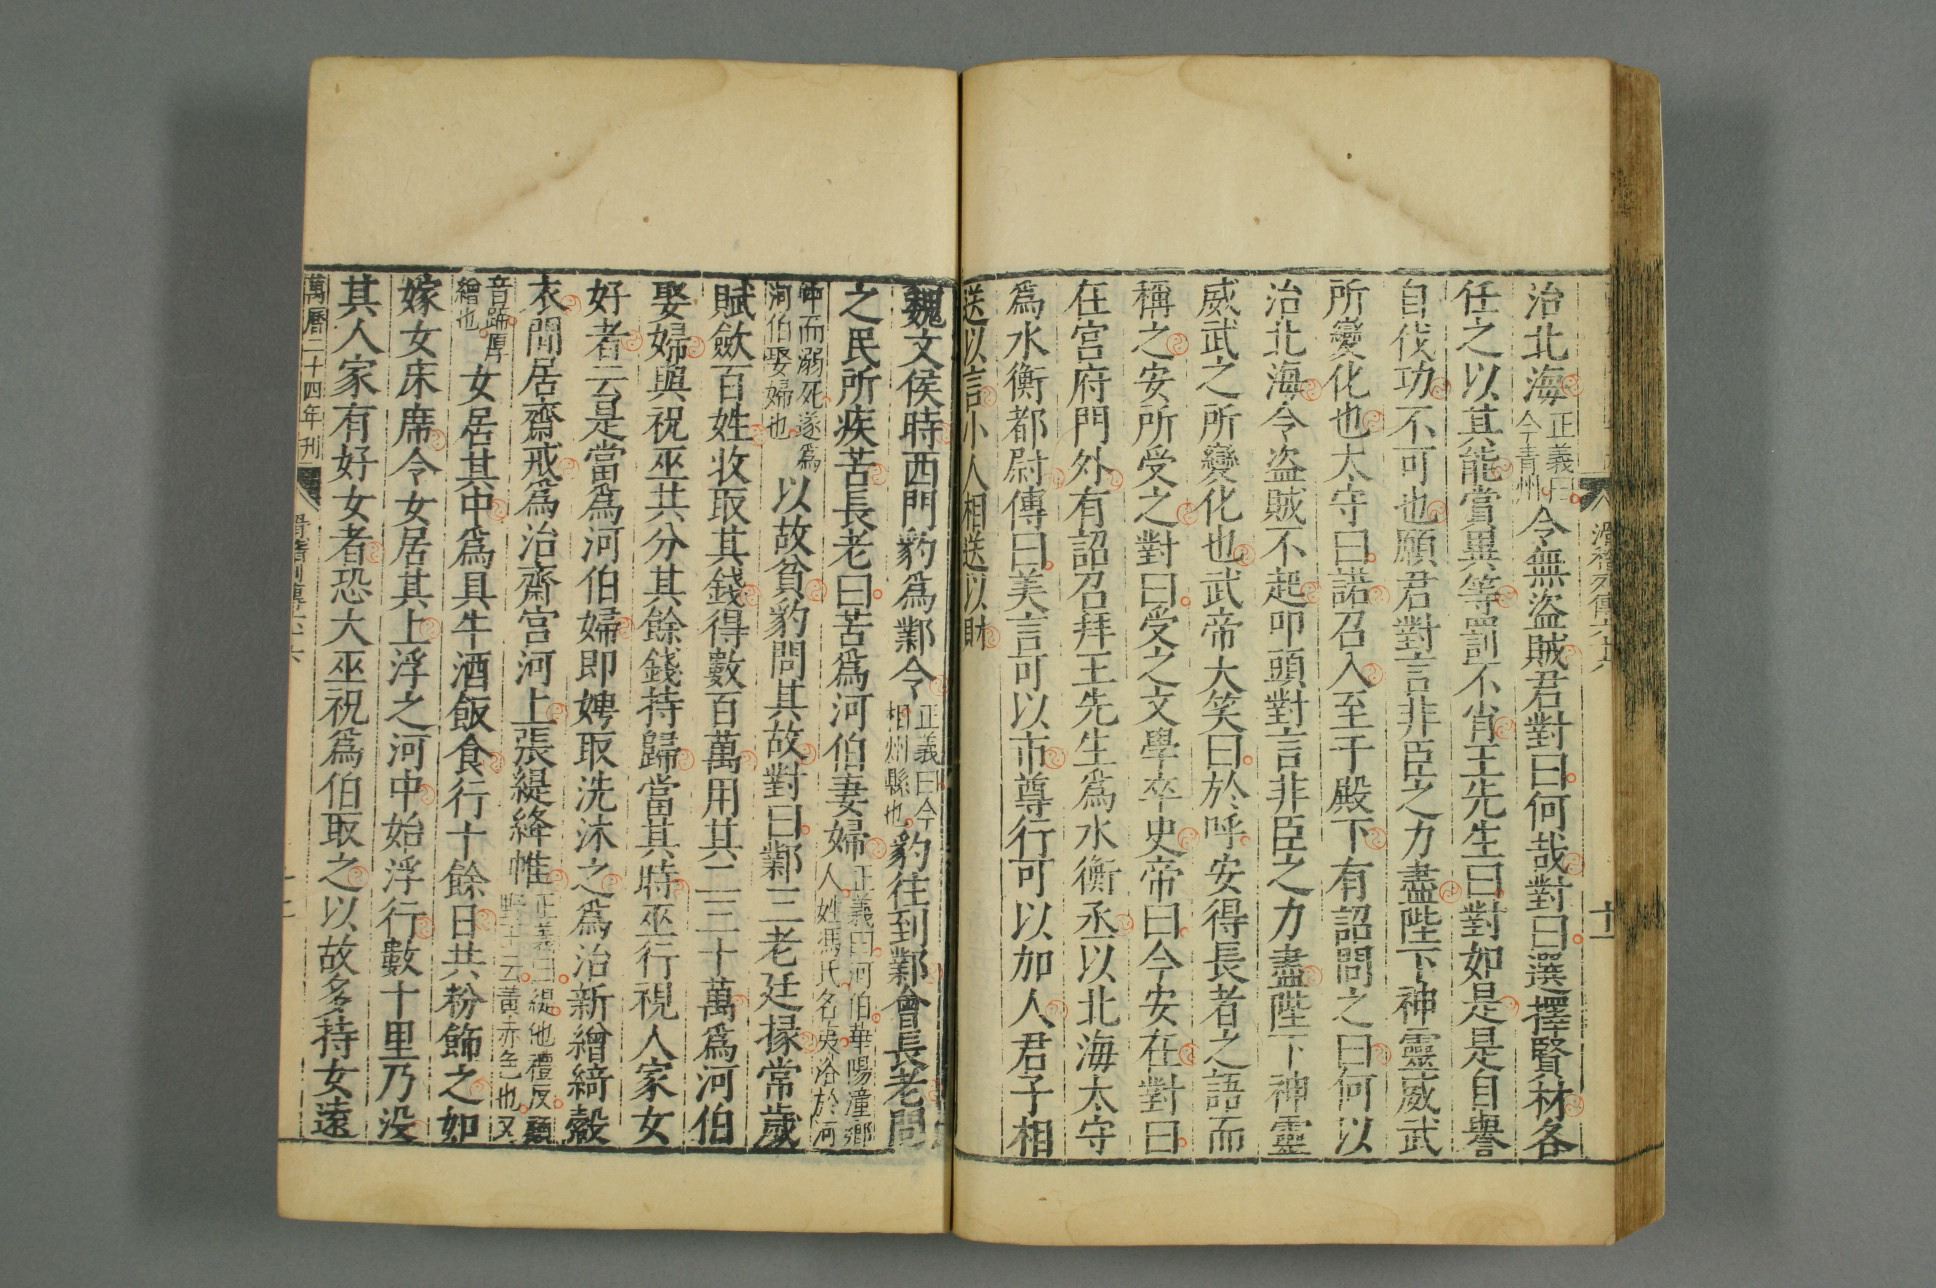 治北海正義曰今青州令無盜賊君對曰何哉對曰選擇賢材各
任之以其能賞異等罰不肖王先生曰對如是是自譽
自伐功不可也願君對言非臣之力盡陛下神靈威武
所變化也太守曰諾召入至于殿下有詔問之曰何以
治北海令盜賊不起叩頭對言非臣之力盡陛下神靈
威武之所變化也武帝大笑曰於呼安得長者之語而
稱之安所受之對曰受之文學卒史帝曰今安在對曰
在宮府門外有詔召拜王先生為水衡丞以北海太守
為水衡都尉傳曰美言可以市尊行可以加人君子相
送以言小人相送以財
魏文侯時西門豹為鄴令正義曰今相州縣也豹往到鄴會長老問
之民所疾苦長老曰苦為河伯妻婦正義曰河伯華陽潼鄉人姓馮氏名夷浴於河
中而溺死遂為河伯娶婦也以故貧豹問其故對曰鄴三老廷掾常歲
賦斂百姓收取其錢得數百萬用其二三十萬為河伯
娶婦與祝巫共分其餘錢持歸當其時巫行視人家女
好者云是當為河伯婦即娉取洗沐之為治新繒綺縠
衣閒居齋戒為治齋宮河上張緹絳帷正義曰緹他禮反顧野王云黃赤色也又
音蹄厚繒也女居其中為具牛酒飯食行十餘日共粉飾之如
嫁女床席令女居其上浮之河中始浮行數十里乃沒
其人家有好女者恐大巫祝為伯取之以故多持女遠
萬曆二十四年刊